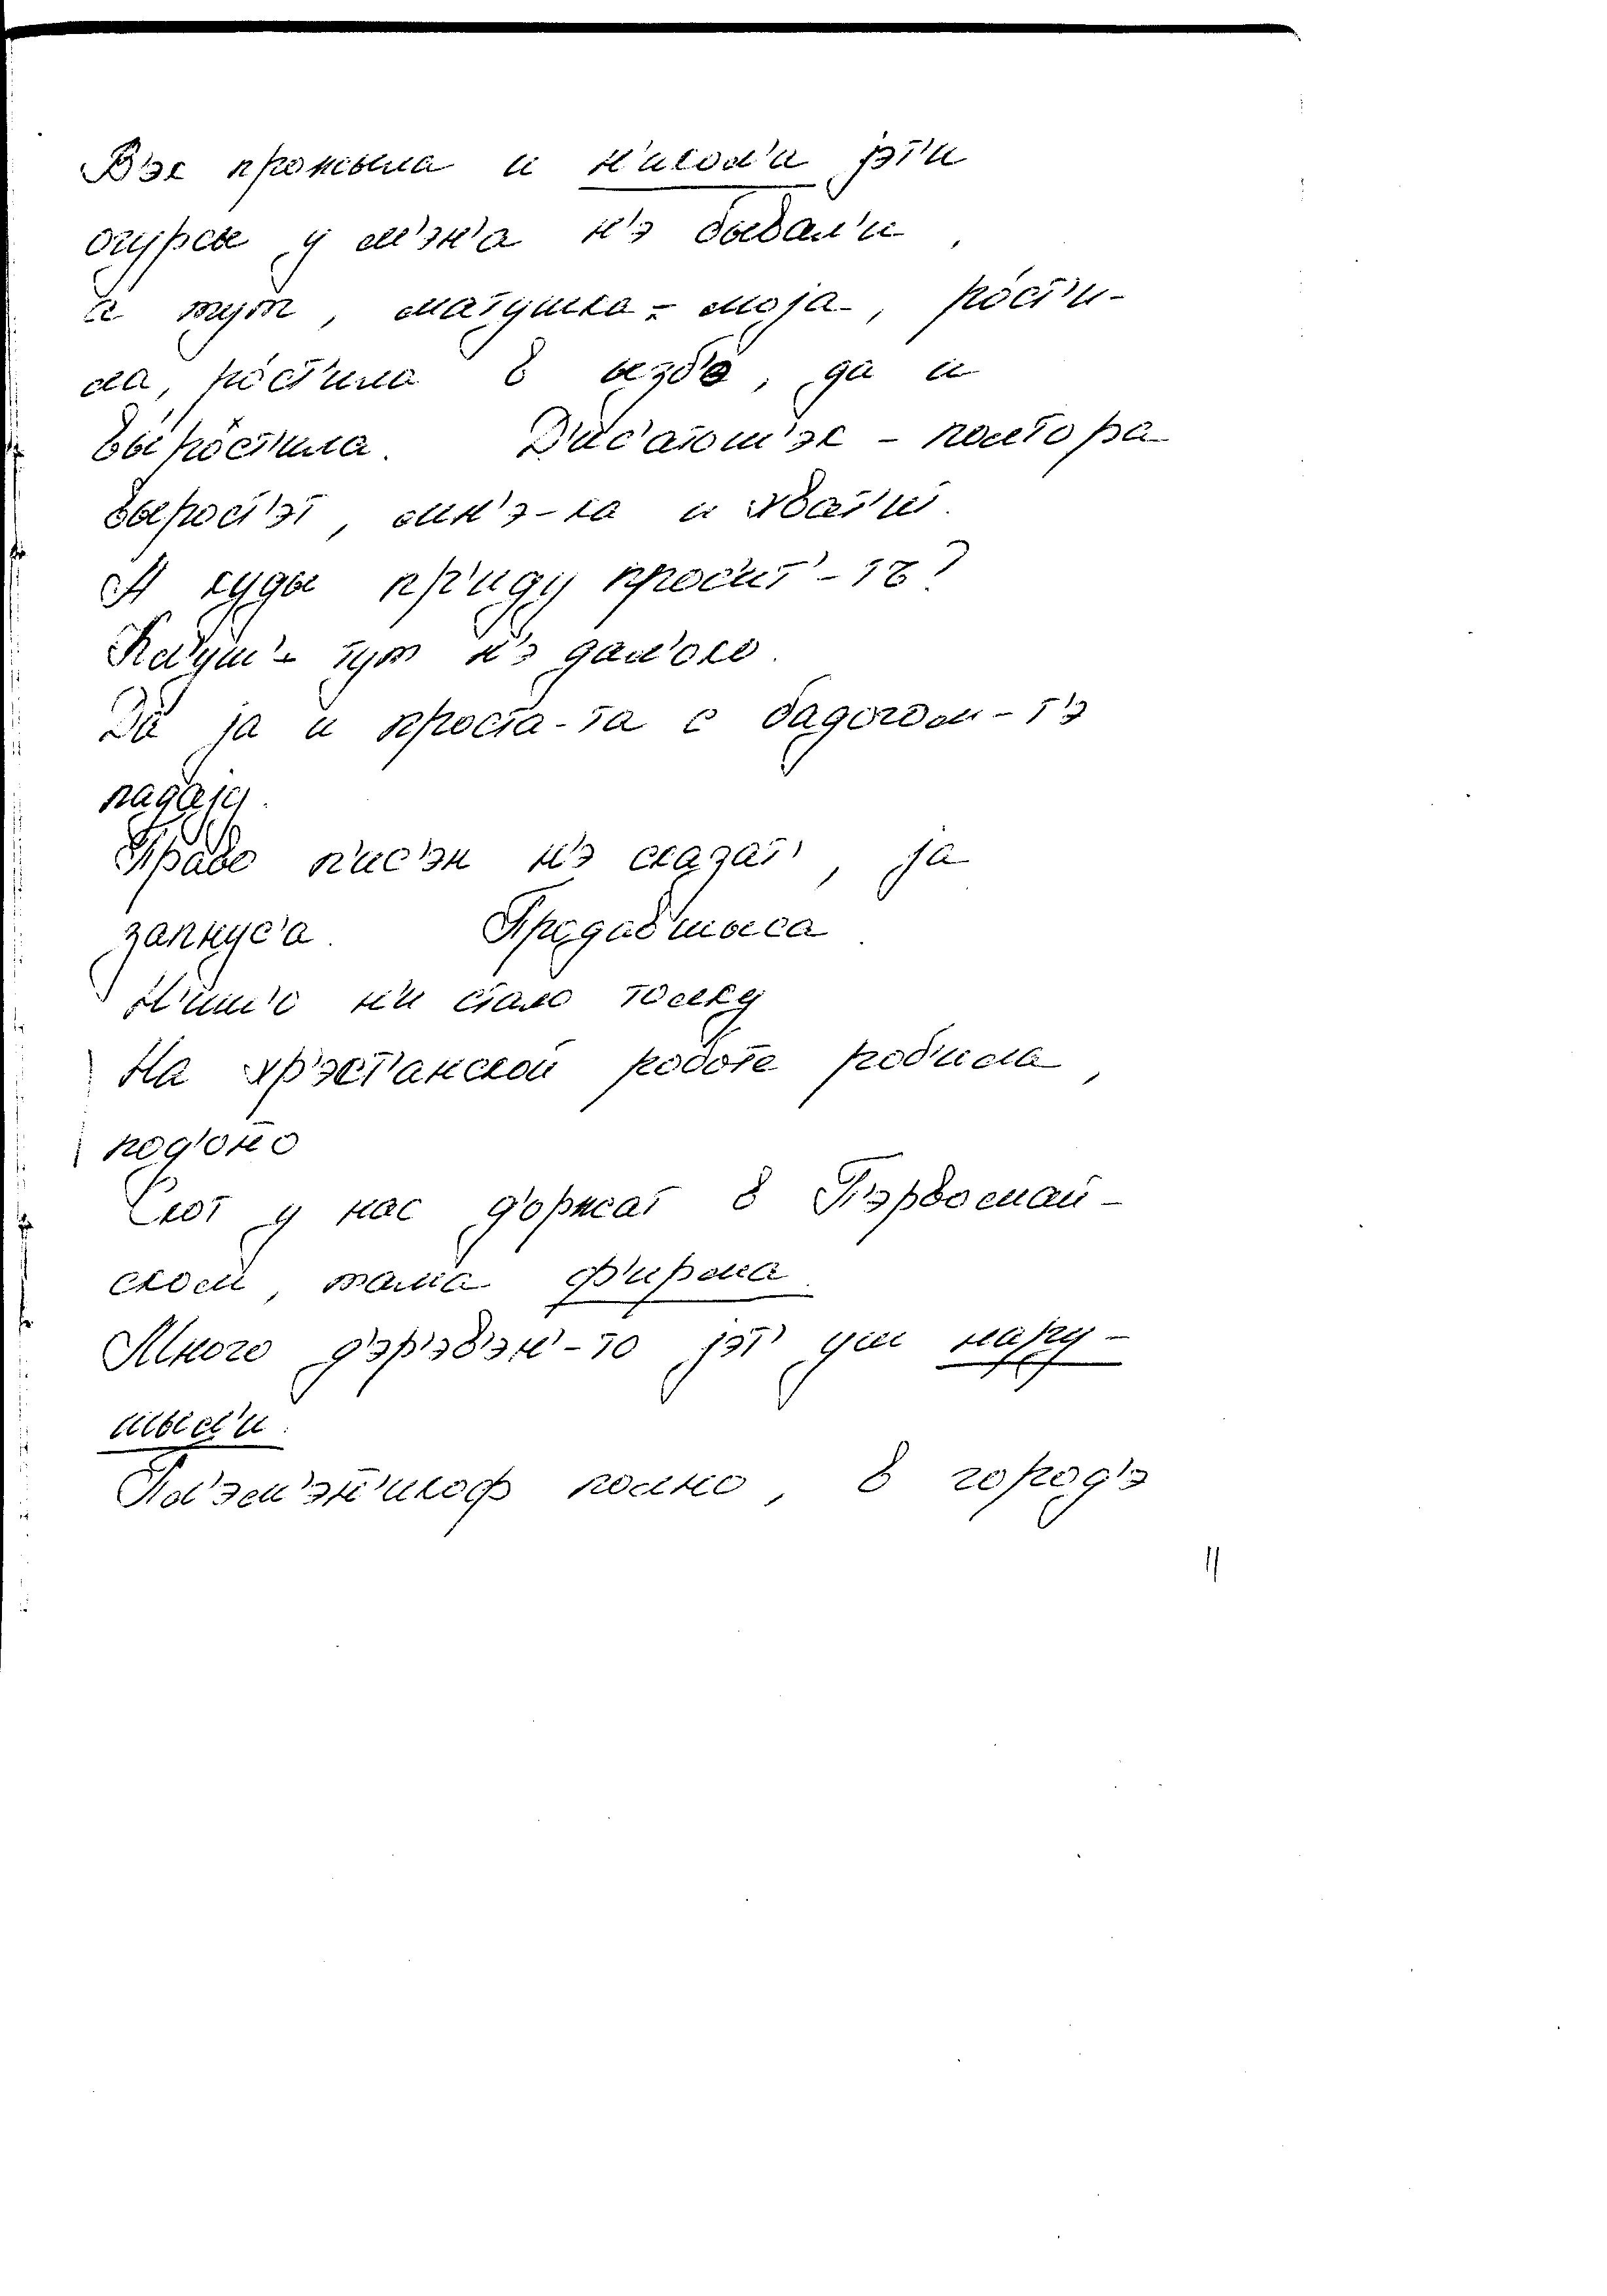 В'эк прожыла и н'икол'и јэт'и
огурсы у м'эн'а н'э бывал'и,
а тут, матушка-моја, рост'и-
ла, рост'ила в избэ, да и
выростила. Д'ис'аточ'эк - полтора
вырост'эт, мн'э-ка и хват'ит.
А куды пр'иду просит'-то?
Кл'уч'- тут н'э дал'око.
Да ја и проста-та с бадогом-т'э
падају.
Право п'ис'эн н'э сказат', ја
запнус'а. Придавшыса
Н'ич'о н'и стало толку
На хр'эст'анской роботе роб'ила,
под'оно
Скот у нас д'оржат в П'эрвомай-
ском, тама ф'ирма
Много д'эр'эв'эн'-то јэт' уш нару-
шыл'и.
Пл'эм'эн'икоф полно, в город'э
11